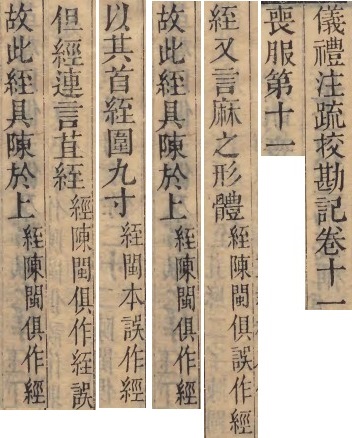 儀禮注疏挍勘記卷十一
喪服第十一
絰又言麻之形體絰陳閩俱誤作經
故此絰具陳於上絰陳閩俱作經
以其首絰圍九寸絰閩本誤作經
但經連言苴絰經陳閩俱作絰誤
故此絰具陳於上絰陳閩俱作經